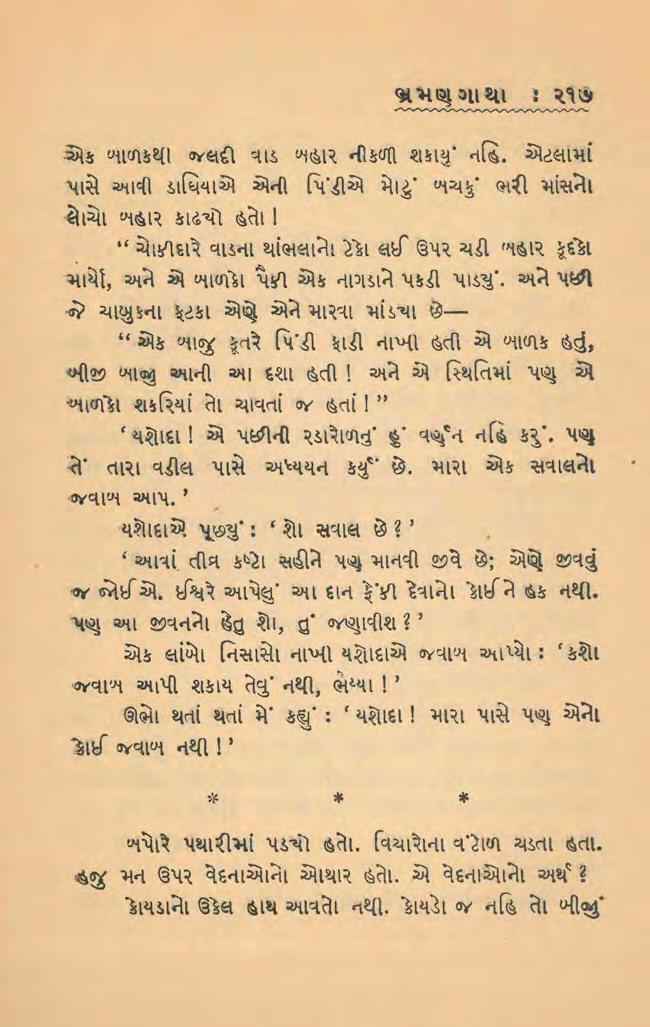 ભ્રમણગાથા : ૨૧૭
એક બાળકથી જલદી વાડ બહાર નીકળી શકાયું નહિ. એટલામાં
પાસે આવી ડાઘિયાએ એની પિંડીએ મોટું બચકું ભરી માંસનો
લોચો બહાર કાઢ્યો હતો!
“ ચોકીદારે વાડના થાંભલાનો ટેકો લઈ ઉપર ચડી બહાર કૂદકો
માર્યો, અને એ બાળકો પૈકી એક નાગડાને પકડી પાડ્યું. અને પછી
જે ચાબુકના ફટકા એણે એને મારવા માંડ્યા છે—
“ એક બાજુ કૂતરે પિંડી ફાડી નાખી હતી એ બાળક હતું,
બીજી બાજુ આની આ દશા હતી! અને એ સ્થિતિમાં પણ એ
બાળકો શકરિયાં તો ચાવતાં જ હતાં!”
‘ યશોદા! એ પછીની રડારોળનું હું વર્ણન નહિ કરું. પણ
તેં તારા વડીલ પાસે અધ્યયન કર્યું છે. મારા એક સવાલનો
જવાબ આપ. ’
યશોદાએ પૂછ્યું : ‘ શો સવાલ છે? ’
‘ આવાં તીવ્ર કષ્ટો સહીને પણ માનવી જીવે છે; એણે જીવવું
જ જોઈએ. ઈશ્વરે આપેલું આ દાન ફેંકી દેવાનો કોઈને હક નથી.
પણ આ જીવનનો હેતુ શો, તું જણાવીશ? ’
એક લાંબો નિસાસો નાખી યશોદાએ જવાબ આપ્યો : ‘ કશો
જવાબ આપી શકાય તેવું નથી, ભૈય્યા! ’
ઊભો થતાં થતાં મેં કહ્યું : ‘ યશોદા! મારા પાસે પણ એનો
કોઈ જવાબ નથી! ’
* * *
બપોરે પથારીમાં પડ્યો હતો. વિચારોના વંટોળ ચડતા હતા.
હજુ મન ઉપર વેદનાઓનો ઓથાર હતો. એ વેદનાઓનો અર્થ?
કોયડાનો ઉકેલ હાથ આવતો નથી. કોયડો જ નહિ તો બીજું